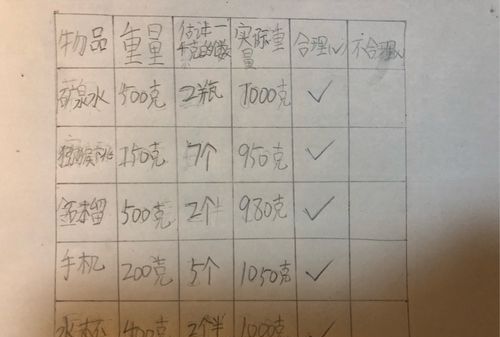 物品 重量 估计一千克的数 实际重量 合理✓ 不合理
矿泉水 500克 2瓶 1000克 ✓
猕猴桃 150克 7个 950克 ✓
金木留 500克 2个 980克 ✓
手机 200克 5个 1050克 ✓
水杯 400克 2个半 1000克